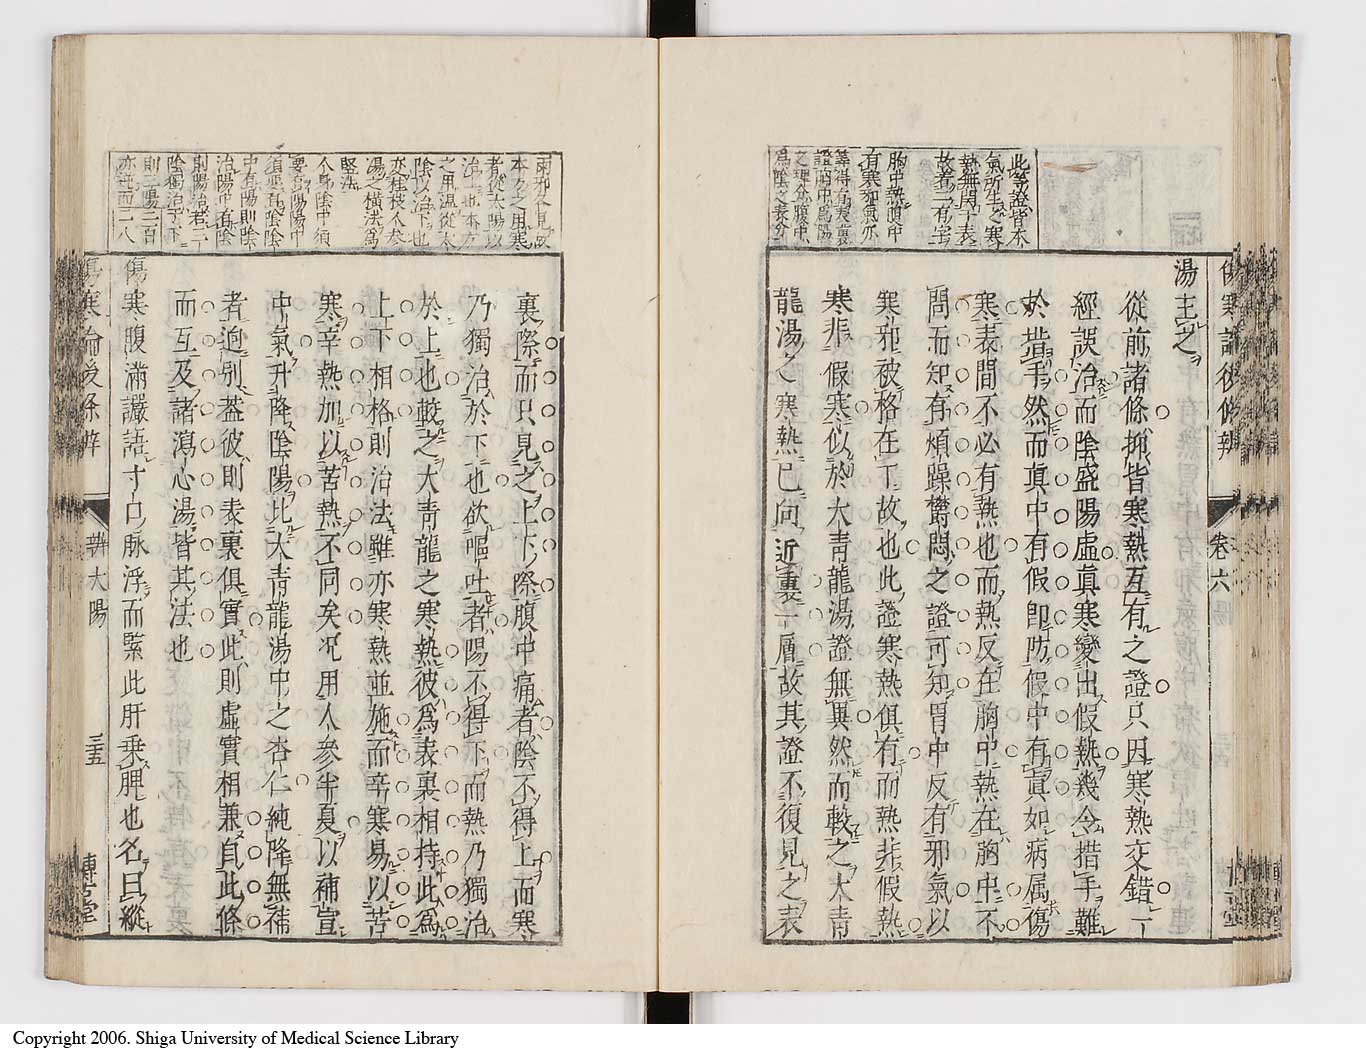 傷寒論後條辨
卷六
湯主之
從前諸條抑皆寒熱互有之證只因寒熱交錯一
經誤治而陰盛陽虛真寒變出假熱幾令措手難
於措手然而真中有假卽防假中有真如病属傷
寒表間不必有熱也而熱反在胸中熱在胸中不
問而知有煩躁欝悶之證可知胃中反有邪氣以
寒邪被格在下故也此證寒熱俱有而熱非假熱
寒非假寒似於大青龍湯證無異然而較之大青
龍湯之寒熱已向近裏一層故其證不復見之表
此等證皆本
氣所生之寒
熱無関于表
故着二有字
胸中熱胃中
有寒邪氣亦
等得有表裏
證胸中為陽
之裡分腹中
為陰之表分
裏際而只見之上下際腹中痛者陰不得上而寒
乃獨治於下也欲嘔吐者陽不得下而熱乃獨治
於上也較之大青龍之寒熱彼為表裏相持此為
上下相格則治法雖亦寒熱並施而辛寒易以苦
寒辛熱加以苦熱不同矣况用人參半夏以補宣
中氣升降陰陽比大青龍湯中之杏仁純降無補
者迫別葢彼則表裏俱實此則虛實相兼自此條
而互及諸瀉心湯皆其法也
傷寒腹滿讝語寸口脉浮而緊此肝乗脾也名曰縱
兩邪各見故
本方之用寒
者從太陽以
治上也本方
之用温從太
陰以治下也
変桂枝人参
湯之橫法為
竪法
今身陰中須
要責陽陽中
須要責陰陰
中有陽則陰
治陽中有陰
則陽治若二
陰獨治于下
則三陽二百
亦純而二八
傷寒論後條辨
辨太陽
三五
博古堂
Copyright 2006. Shiga University of Medical Science Library